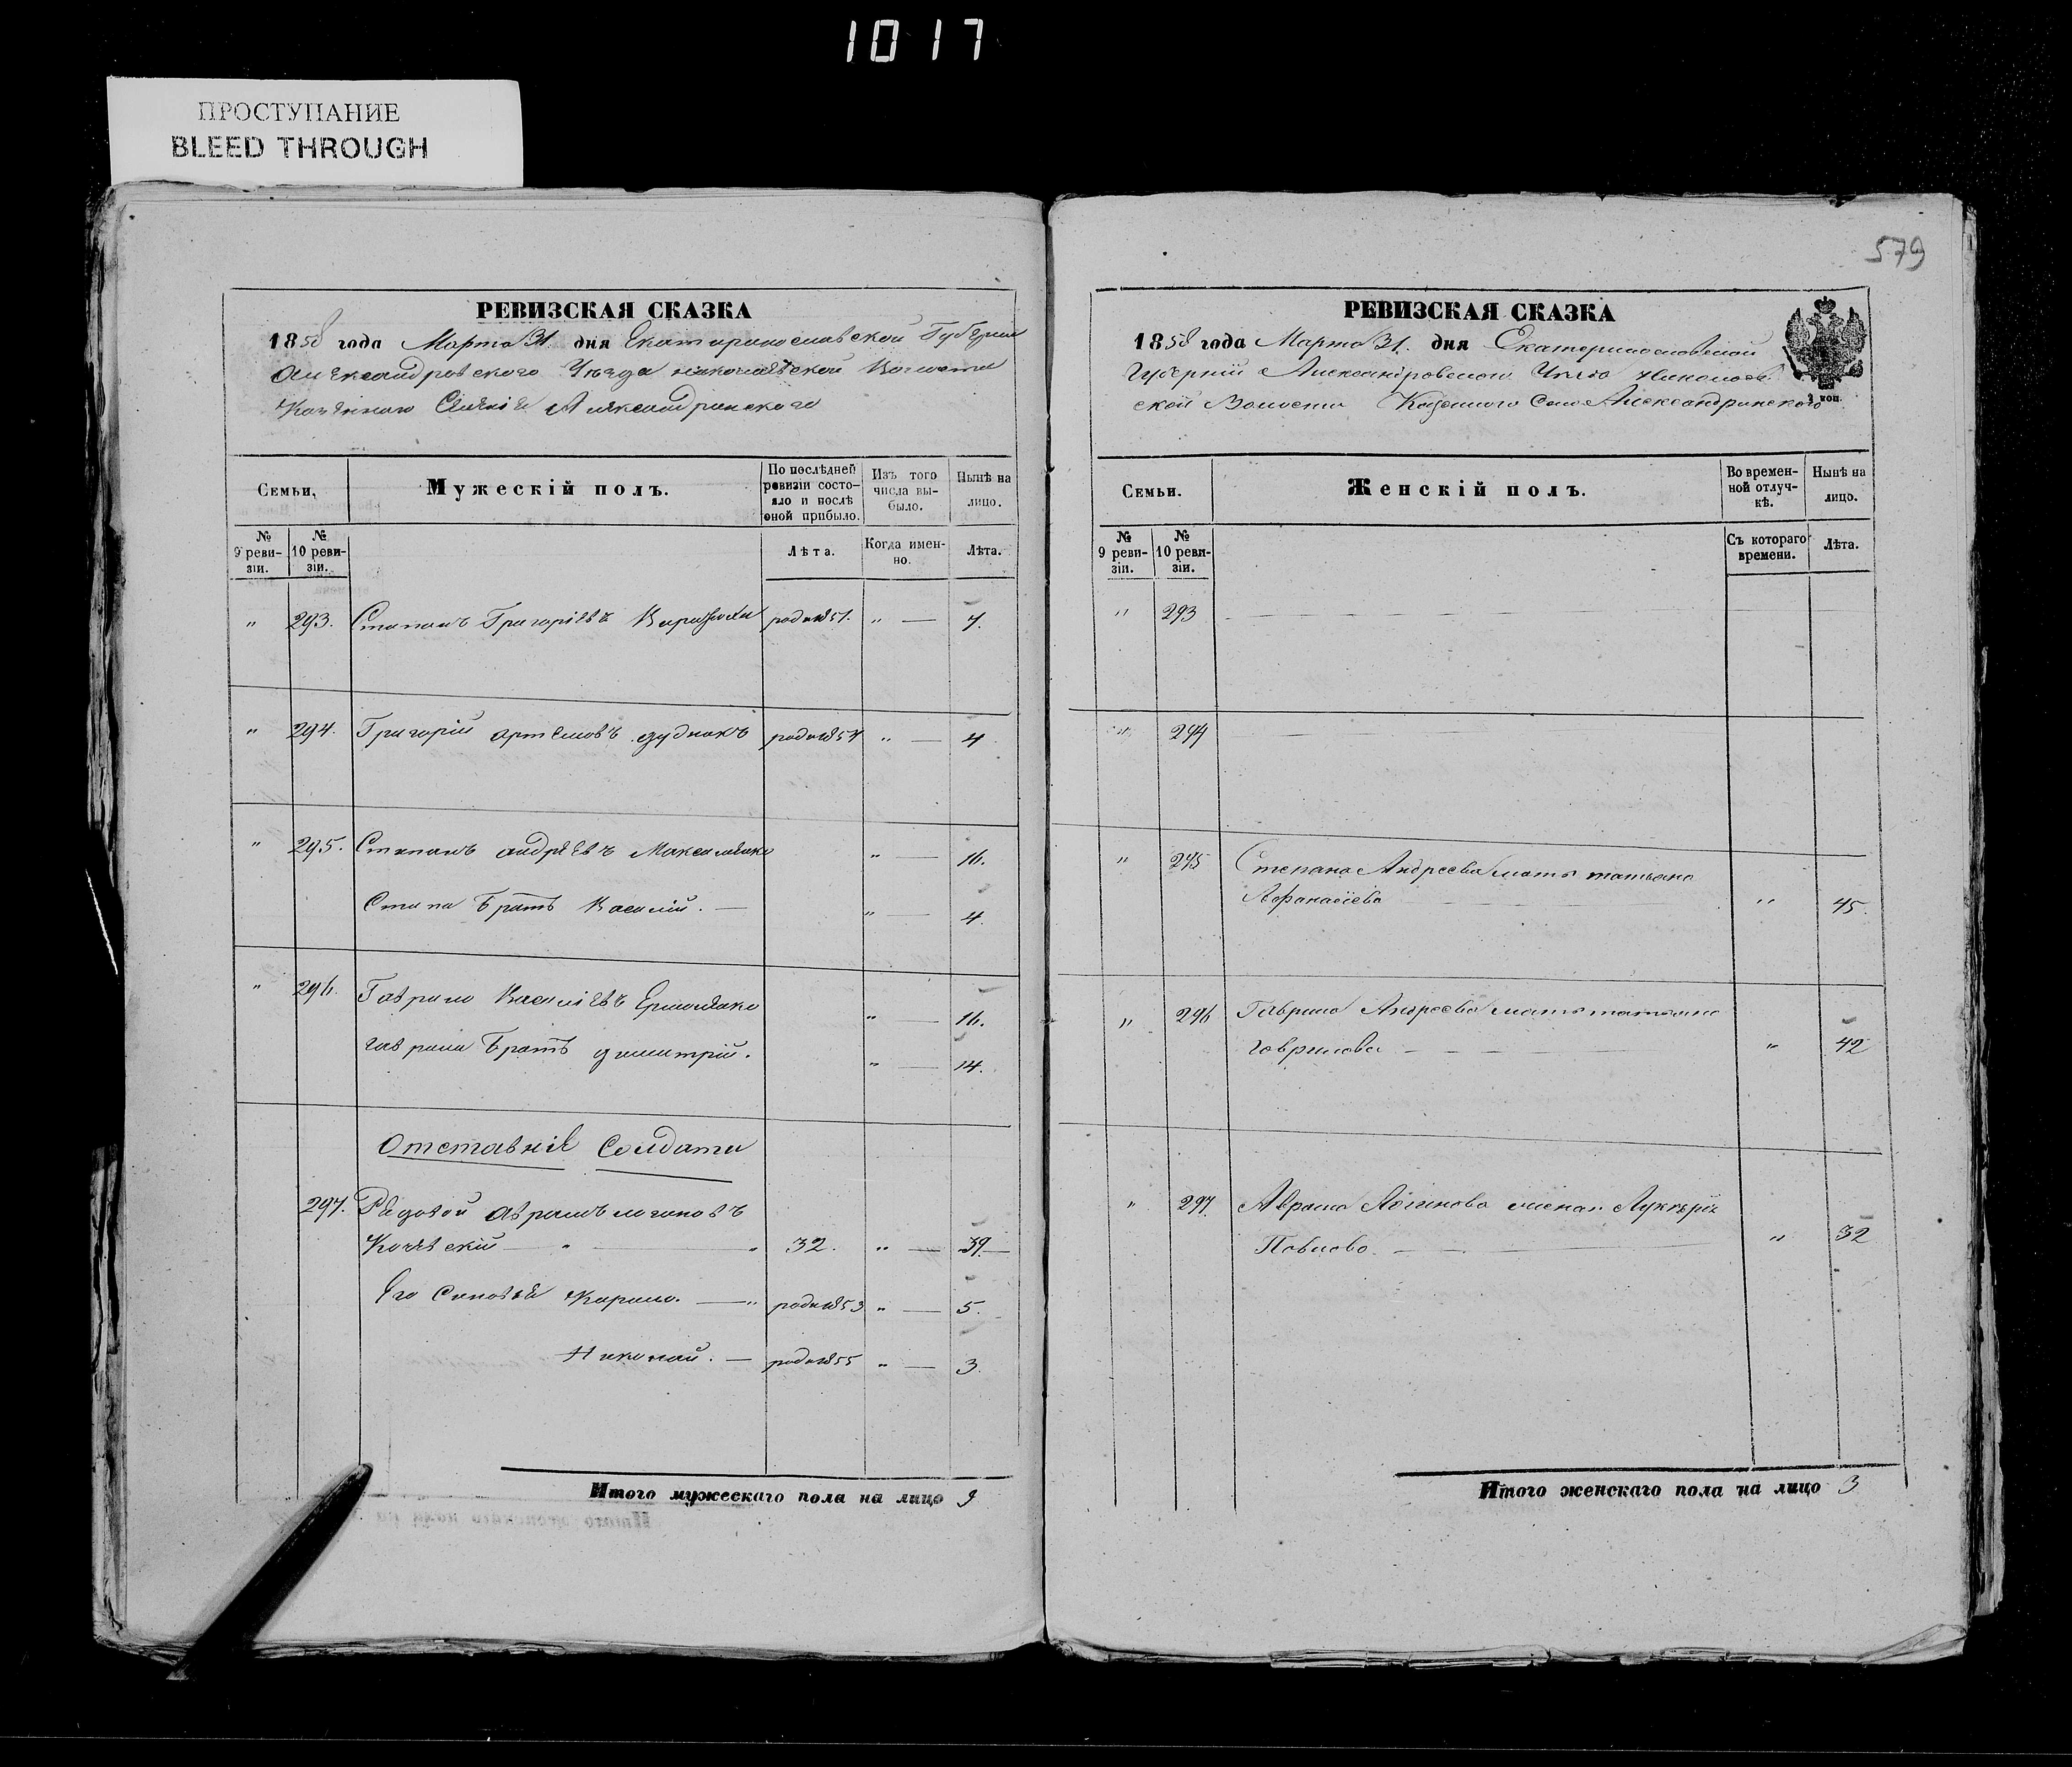 1017
ПРОСТУПАНИЕ
BLEED THROUGH
579
РЕВИЗСКАЯ СКАЗКА
1858 года Марта 31. дня Екатеринославской Губерніи
Александровского Уѣзда николаевской Волости
Казенного Селенія Александринского
Семьи.
Мужескій полъ.
По послѣдней ревизіи состояло и послѣ оной прибыло.
Изъ того числа выбыло.
Нынѣ на лицо.
№ 9 ревизіи.
№ 10 ревизіи.
Лѣта.
Когда именно.
Лѣта.
" 293. Степанъ Григоріевъ родил 1851. " — 7.
" 294. Григорій артемовъ дуднакъ родил 1854 " — 4
" 295. Степанъ андреевъ Максименко " — 16.
Степа братъ Василій. — " — 4.
" 296. Гаврило Василіевъ Ермоленко " — 16.
гаврила братъ димитрій. " — 14.
Отставніе Солдати
297. Рядовой аврамъ логиновъ
Кочевскій — " — " 32. " — 39.—
Его Синовей Кирило. — " родил 1853 " — 5.
Николай. — родил 1855 " — 3.
Итого мужескаго пола на лицо 9
РЕВИЗСКАЯ СКАЗКА
1858 года Марта 31. дня Екатеринославской
Губерніи Александровского Уѣзда Николаев
ской Волости Казенного Села Александринского
3 коп.
Семьи.
Женскій полъ.
Во временной отлучкѣ.
Нынѣ на лицо.
№ 9 ревизіи.
№ 10 ревизіи.
Съ котораго времени.
Лѣта.
" 293 — — — —
" 294 — — — —
" 295 Степана Андреева мать татьяна
Афанасіева — — — " 45.
" 296 Гаврила Андреева мать татьяна
гаврилова — — — — " 42
" 297. Аврама Логинова жена Луккерія
Павлова. — — — " 32
Итого женскаго пола на лицо 3